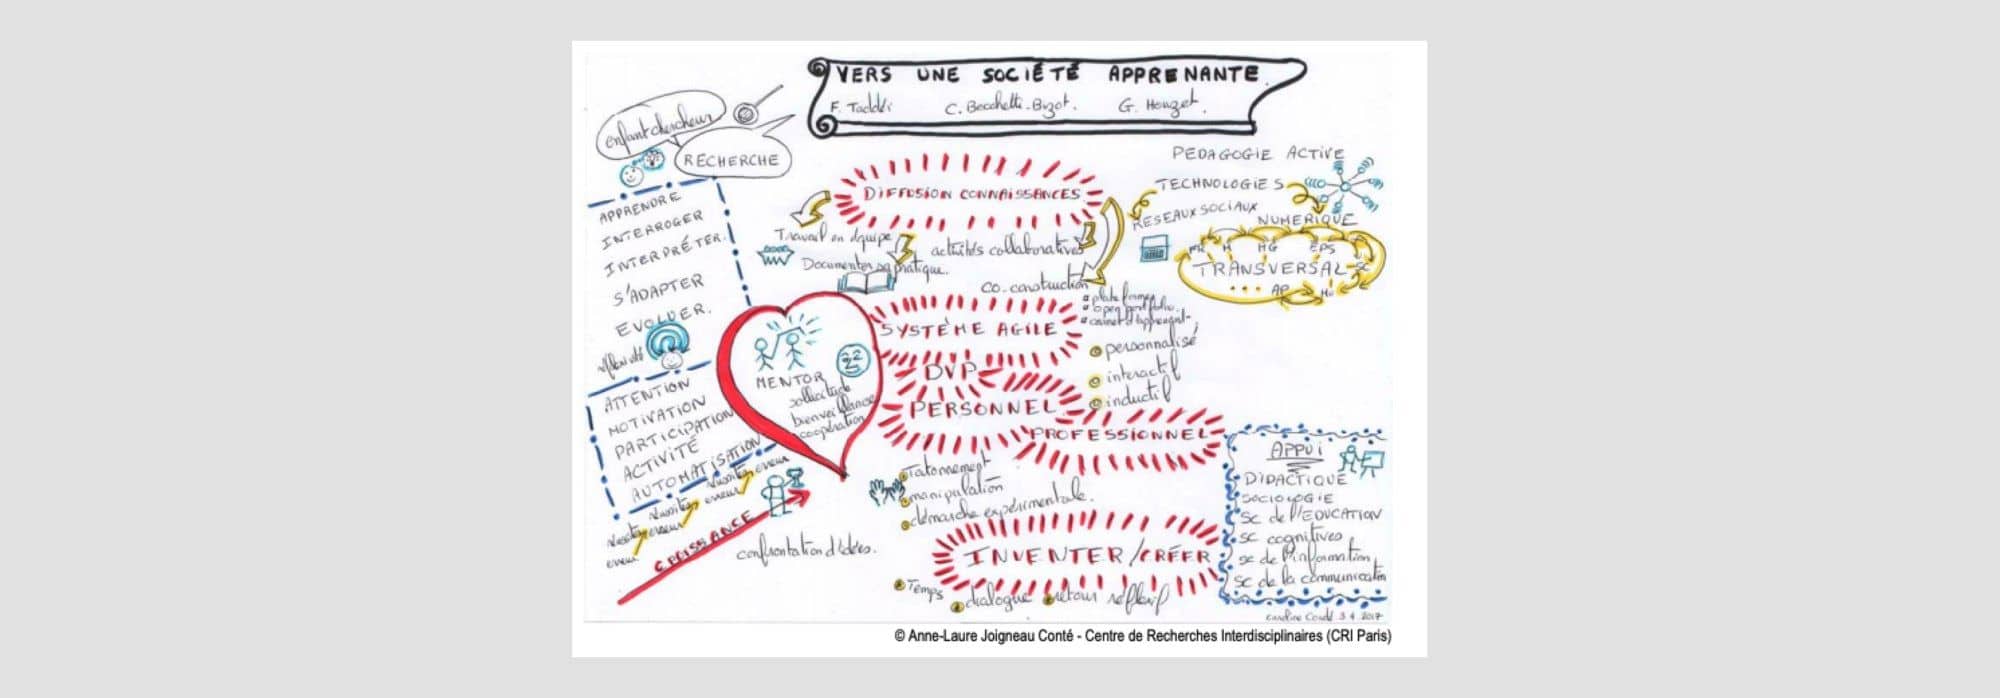 VERS UNE SOCIÉTÉ APPRENANTE.
F. Taddéi C. Becchetti-Bizot. G. Houzet.
enfant chercheur
RECHERCHE
APPRENDRE
INTERROGER
INTERPRÉTER.
S'ADAPTER
EVOLUER.
ATTENTION
MOTIVATION
PARTICIPATION
ACTIVITÉ
AUTOMATISATION
erreur
réussite
erreur
réussite
erreur
réussite
erreur
CROISSANCE
confrontation d'idées.
MENTOR
sollicitude
bienveillance
coopération
DIFFUSION CONNAISSANCES
Travail en équipe
activités collaboratives
Documenter sa pratique.
co-construction
SYSTÈME AGILE
plateformes
open portfolio.
carnet d'apprenant
personnalisé
interactif
inductif
DVP
PERSONNEL
PROFESSIONNEL
Tatonnement
manipulation
démarche expérimentale.
INVENTER/CRÉER
Temps
dialogue
retour réflexif
PEDAGOGIE ACTIVE
TECHNOLOGIES
RESEAUX SOCIAUX
NUMERIQUE
HG EPS
TRANSVERSAL
... AP
APPUI
DIDACTIQUE
SOCIOLOGIE
SC de l'EDUCATION
SC cognitives
sc de l'information
SC de la communication
3 4 2017
© Anne-Laure Joigneau Conté - Centre de Recherches Interdisciplinaires (CRI Paris)